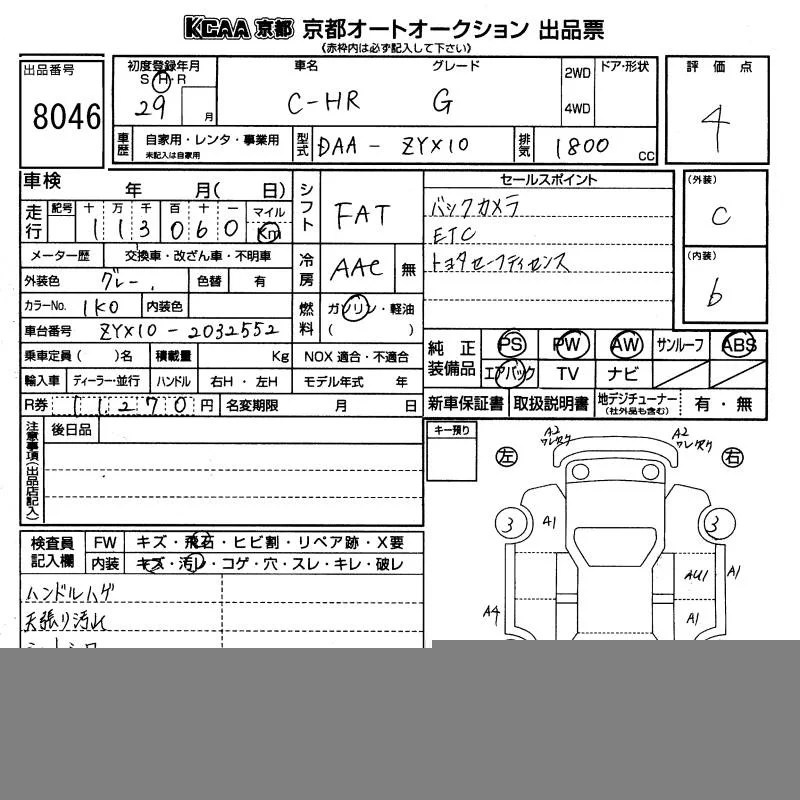 KCAA 京都 京都オートオークション 出品票
(赤枠内は必ず記入して下さい)
出品番号
8046
初度登録年月
S・H・R
29 月
車名 グレード
C-HR G
2WD
4WD
ドア・形状
評価点
4
車歴
自家用・レンタ・事業用
未記入は自家用
型式
DAA-ZYX10
排気
1800 CC
車検 年 月( 日)
走行
記号 十 万 千 百 十 一 マイル
113060 Km
メーター歴 交換車・改ざん車・不明車
外装色 グレー 色替 有
カラーNo. 1K0 内装色
車台番号 ZYX10-2032552
乗車定員( )名 積載量 Kg NOX 適合・不適合
輸入車 ディーラー・並行 ハンドル 右H・左H モデル年式 年
R券 11270円 名変期限 月 日
シフト FAT
冷房 AAC 無
燃料 ガソリン・軽油
( )
セールスポイント
バックカメラ
ETC
トヨタセーフティセンス
(外装)
C
(内装)
b
純正装備品
PS PW AW サンルーフ ABS
エアバック TV ナビ
新車保証書 取扱説明書 地デジチューナー
(社外品も含む)
有・無
注意事項(出品店記入)
後日品
キー預り
A2
ワレ欠ク
A2
ワレ欠ク
左 右
3 A1 3
AU1 A1
A4 A1
検査員記入欄
FW キズ・飛石・ヒビ割・リペア跡・X要
内装 キズ・汚レ・コゲ・穴・スレ・キレ・破レ
ハンドルハゲ
天張り汚れ